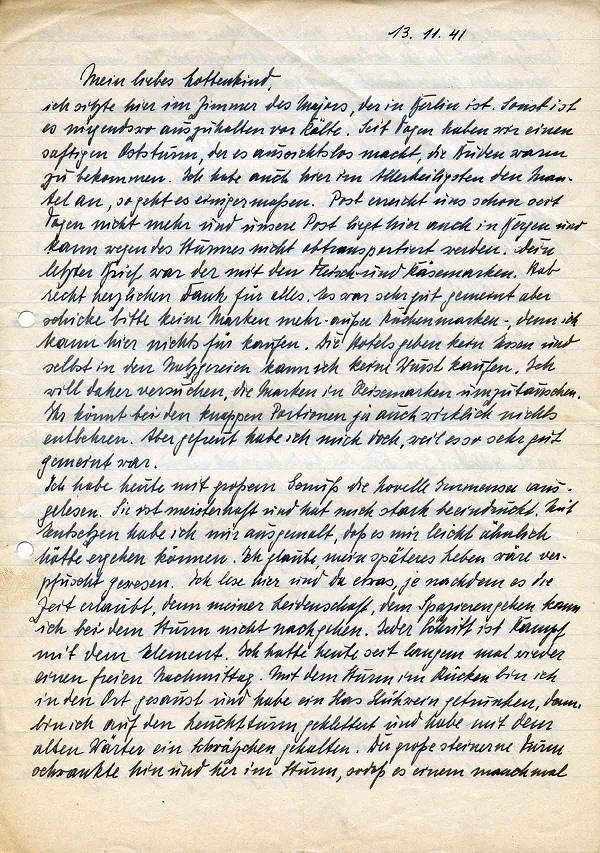 13. 11. 41
Mein liebes Lottenkind,
ich sitze hier im Zimmer des Majors, der in Berlin ist. Sonst ist
es nirgendwo auszuhalten vor Kälte. Seit Tagen haben wir einen
saftigen Oststurm, der es aussichtslos macht, die Buden warm
zu bekommen. Ich habe auch hier im Allerheiligsten den Man-
tel an, so geht es einigermaßen. Post erreicht uns schon seit
Tagen nicht mehr und unsere Post liegt hier auch in Bergen und
kann wegen des Sturmes nicht abtransportiert werden. Dein
letzter Brief war der mit den Fleisch- und Käsemarken. Hab
recht herzlichen Dank für alles. Es war sehr gut gemeint aber
schicke bitte keine Marken mehr - außer Kuchenmarken -, denn ich
kann hier nichts für kaufen. Die Hotels geben kein Essen und
selbst in den Metzgereien kann ich keine Wurst kaufen. Ich
will daher versuchen, die Marken in Reisemarken umzutauschen.
Ihr könnt bei den knappen Portionen ja auch wirklich nichts
entbehren. Aber gefreut habe ich mich doch, weil es so sehr gut
gemeint war.
Ich habe heute mit großem Genuß die Novelle Immensee aus-
gelesen. Sie ist meisterhaft und hat mich stark beeindruckt. Mit
Entsetzen habe ich mir ausgemalt, daß es mir leicht ähnlich
hätte ergehen können. Ich glaube, mein späteres Leben wäre ver-
pfuscht gewesen. Ich lese hier und da etwas, je nachdem es die
Zeit erlaubt, denn meiner Leidenschaft, dem Spazierengehen kann
ich bei dem Sturm nicht nachgehen. Jeder Schritt ist Kampf
mit dem Element. Ich hatte heute seit langem mal wieder
einen freien Nachmittag. Mit dem Sturm im Rücken bin ich
in den Ort gesaust und habe ein Glas Glühwein getrunken, dann
bin ich auf den Leuchtturm geklettert und habe mit dem
alten Wärter ein Schwätzchen gehalten. Der große steinerne Turm
schwankte hin und her im Sturm, sodaß es einem manchmal